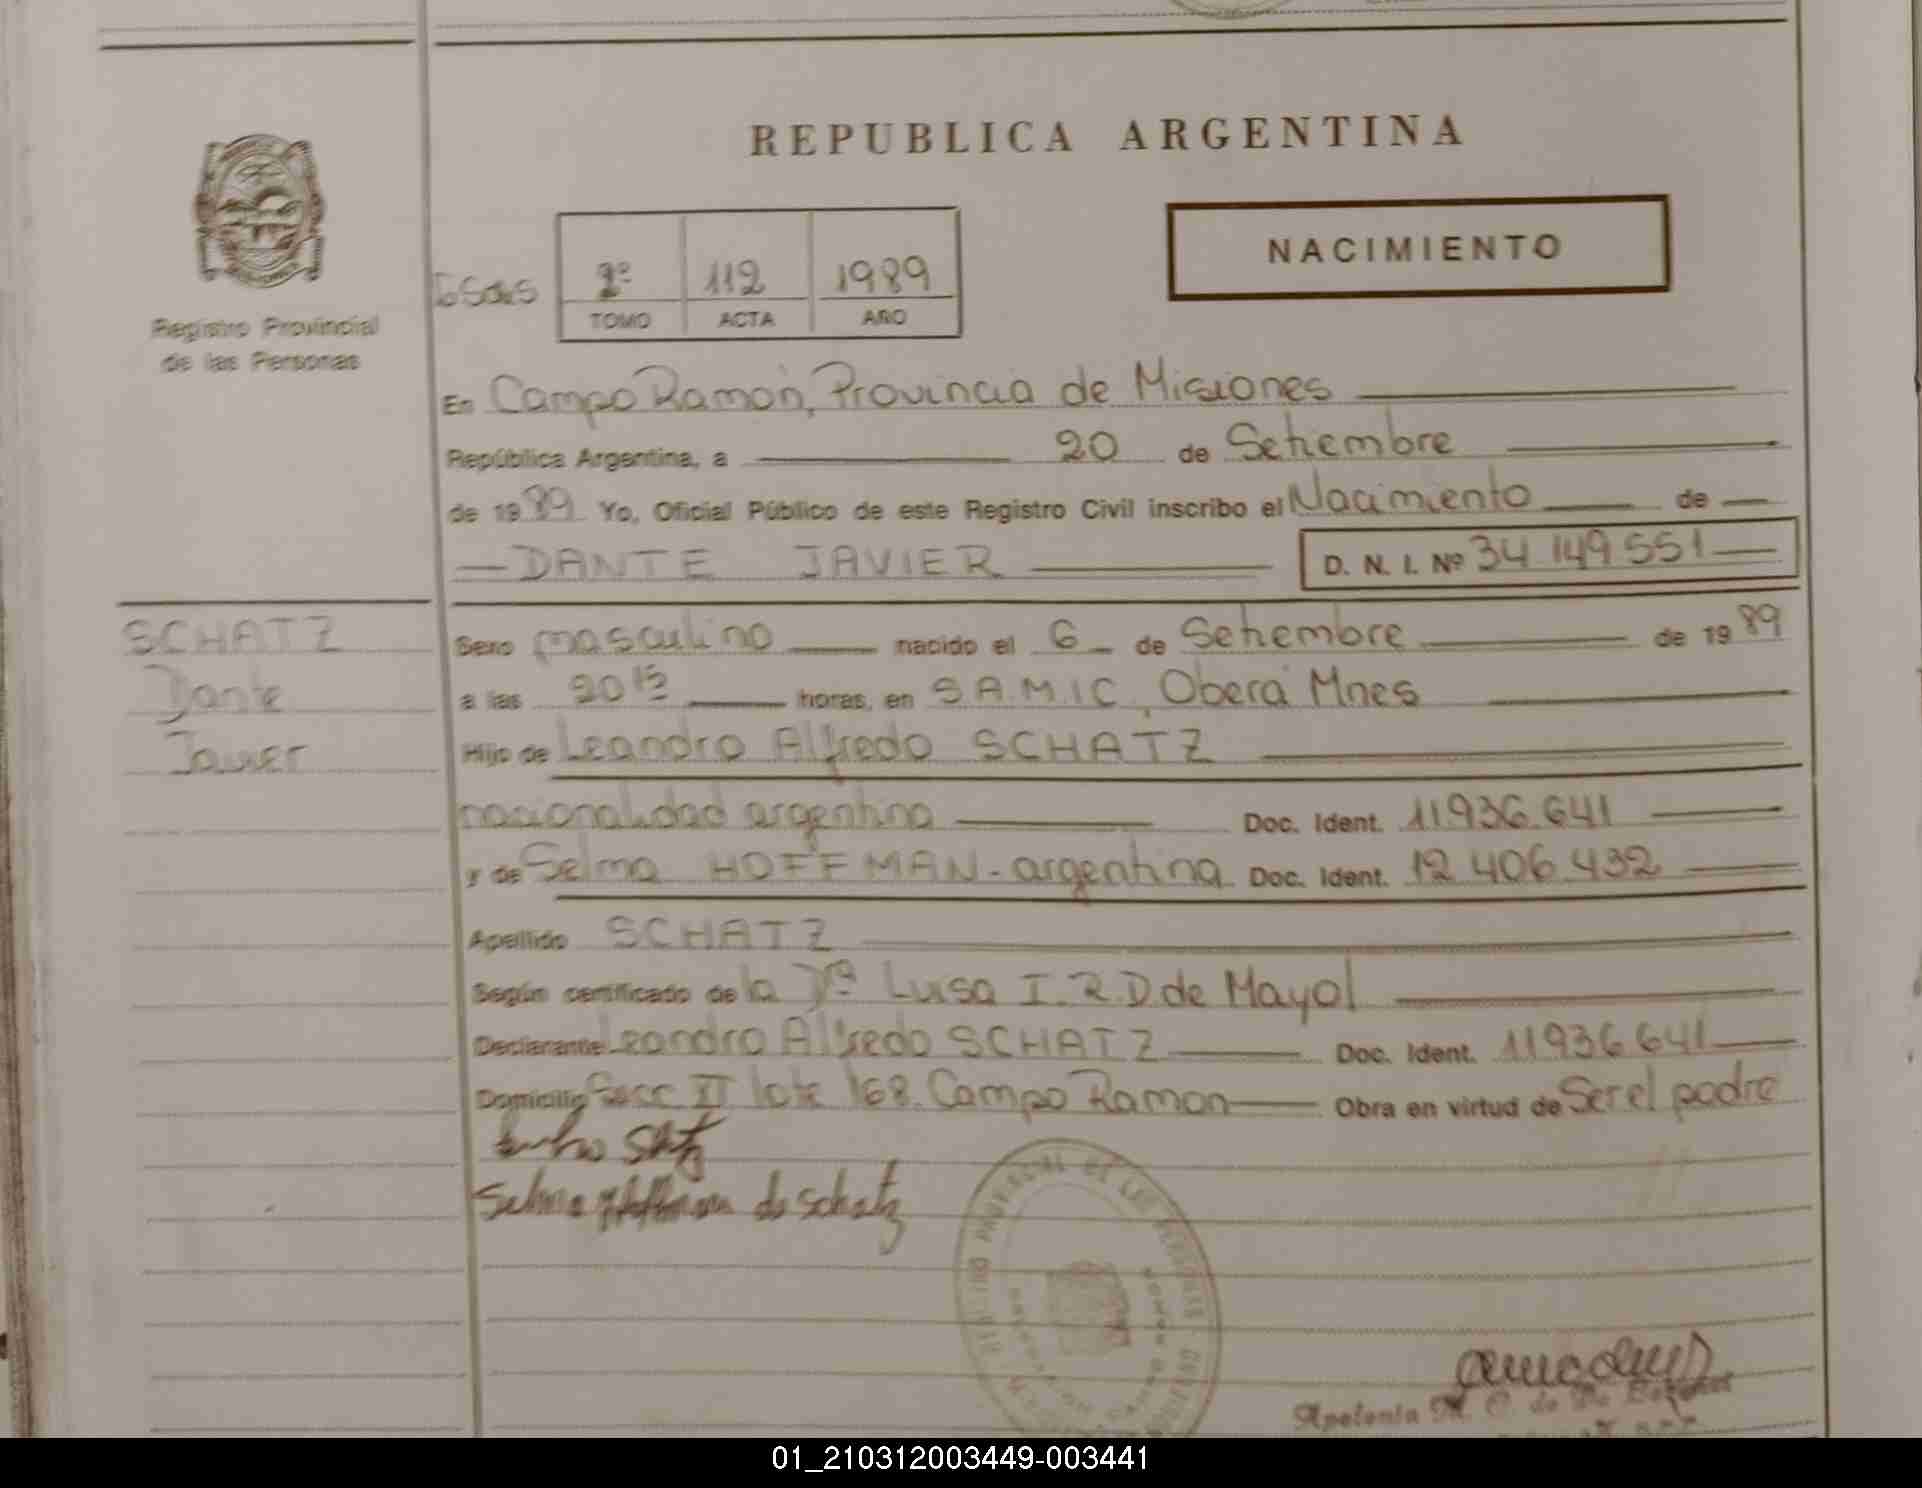 REPUBLICA ARGENTINA
NACIMIENTO
Registro Provincial
de las Personas
2º 112 1989
TOMO ACTA AÑO
En Campo Ramón, Provincia de Misiones
República Argentina, a 20 de Setiembre
de 1989 Yo, Oficial Público de este Registro Civil inscribo el Nacimiento de
DANTE JAVIER D. N. I. Nº 34 149 551
SCHATZ
Dante
Javier
Sexo masculino nacido el 6 de Setiembre de 19 89
a las 20 15 horas, en S.A.M.I.C, Oberá Mnes
Hijo de Leandro Alfredo SCHATZ
nacionalidad argentina Doc. Ident. 11.936.641
y de Selma HOFFMAN - argentina Doc. Ident. 12 406.432
Apellido SCHATZ
Según certificado de la Drª Luisa I. R. D de Mayol
Declarante Leandro Alfredo SCHATZ Doc. Ident. 11936 641
Domicilio Secc II lote 168. Campo Ramon Obra en virtud de Ser el padre
Selma Hoffman de Schatz
Apolonia M. C. de
01_210312003449-003441